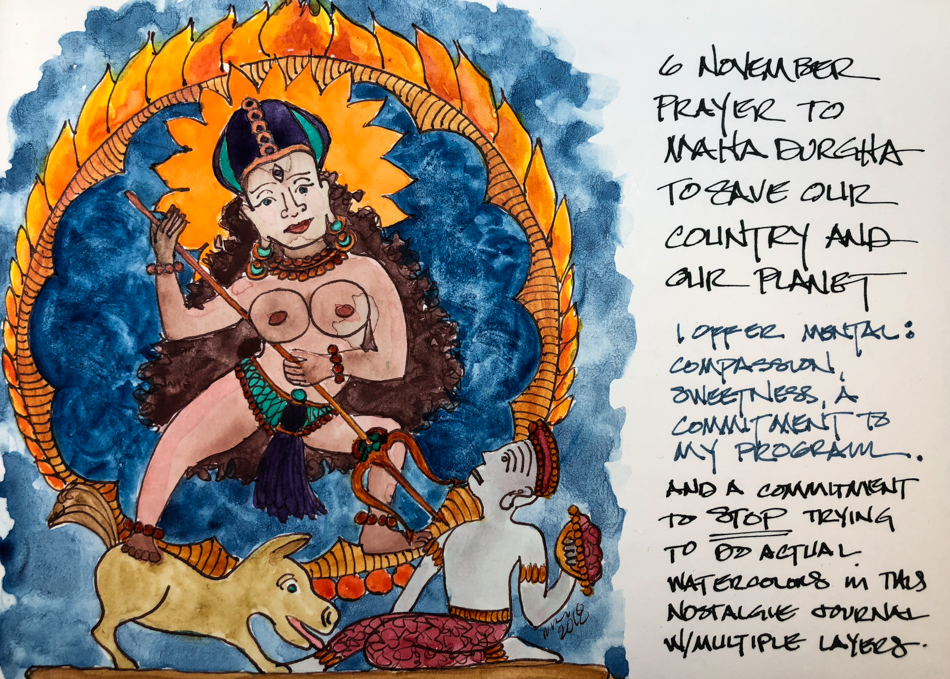 6 NOVEMBER
PRAYER TO
MAHA DURGHA
TO SAVE OUR
COUNTRY AND
OUR PLANET
I OFFER MENTAL:
COMPASSION,
SWEETNESS, A
COMMITMENT TO
MY PROGRAM.
AND A COMMITMENT
TO STOP TRYING
TO DO ACTUAL
WATERCOLORS IN THIS
NOSTALGIE JOURNAL
W/MULTIPLE LAYERS.